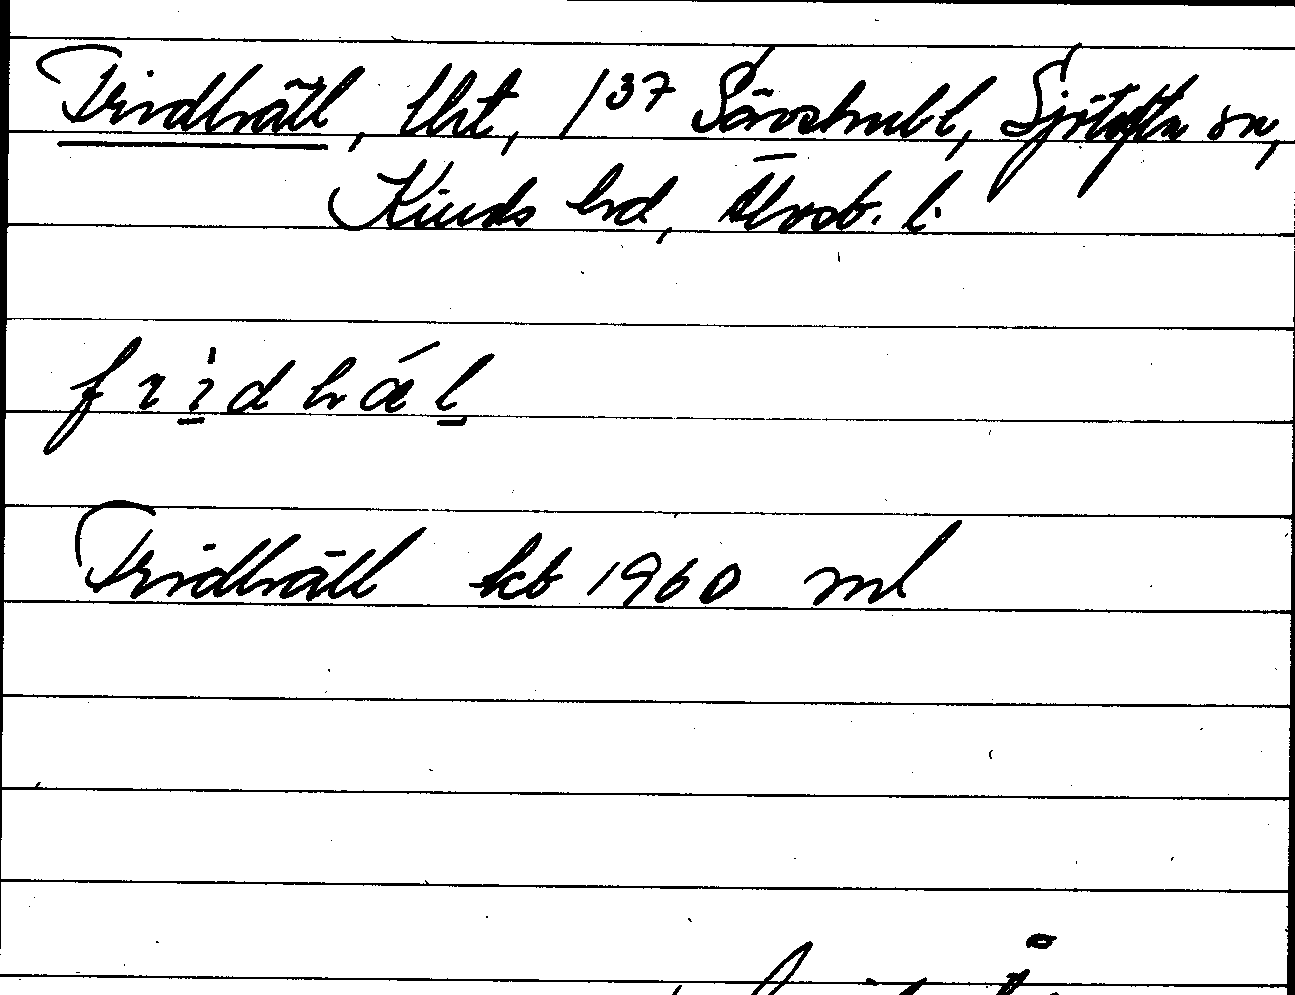 Fridhäll, lht, 1³⁷ Sörvshult, Sjötofta sn,
Kinds hd, Älvsb. l.
fridhǽl
Fridhäll kb 1960 ml